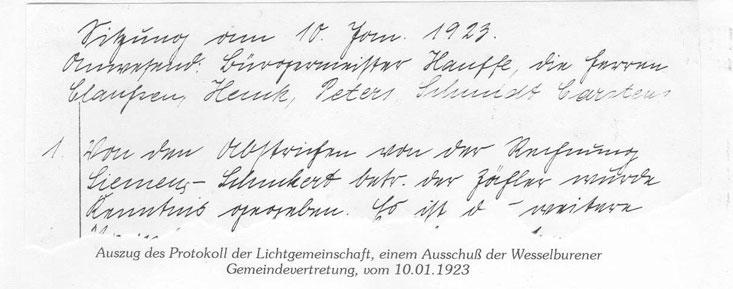 Sitzung am 10. Jan. 1923.
Anwesend: Bürgermeister Hauffe, die Herren
Claußen, Henk, Peters, Schmidt Carstens
1. Von den Abstrichen von der Rechnung
Siemens-Schukert betr. der Zähler wurde
Kenntnis gegeben. Es ist d - weitere
Auszug des Protokoll der Lichtgemeinschaft, einem Ausschuß der Wesselburener
Gemeindevertretung, vom 10.01.1923